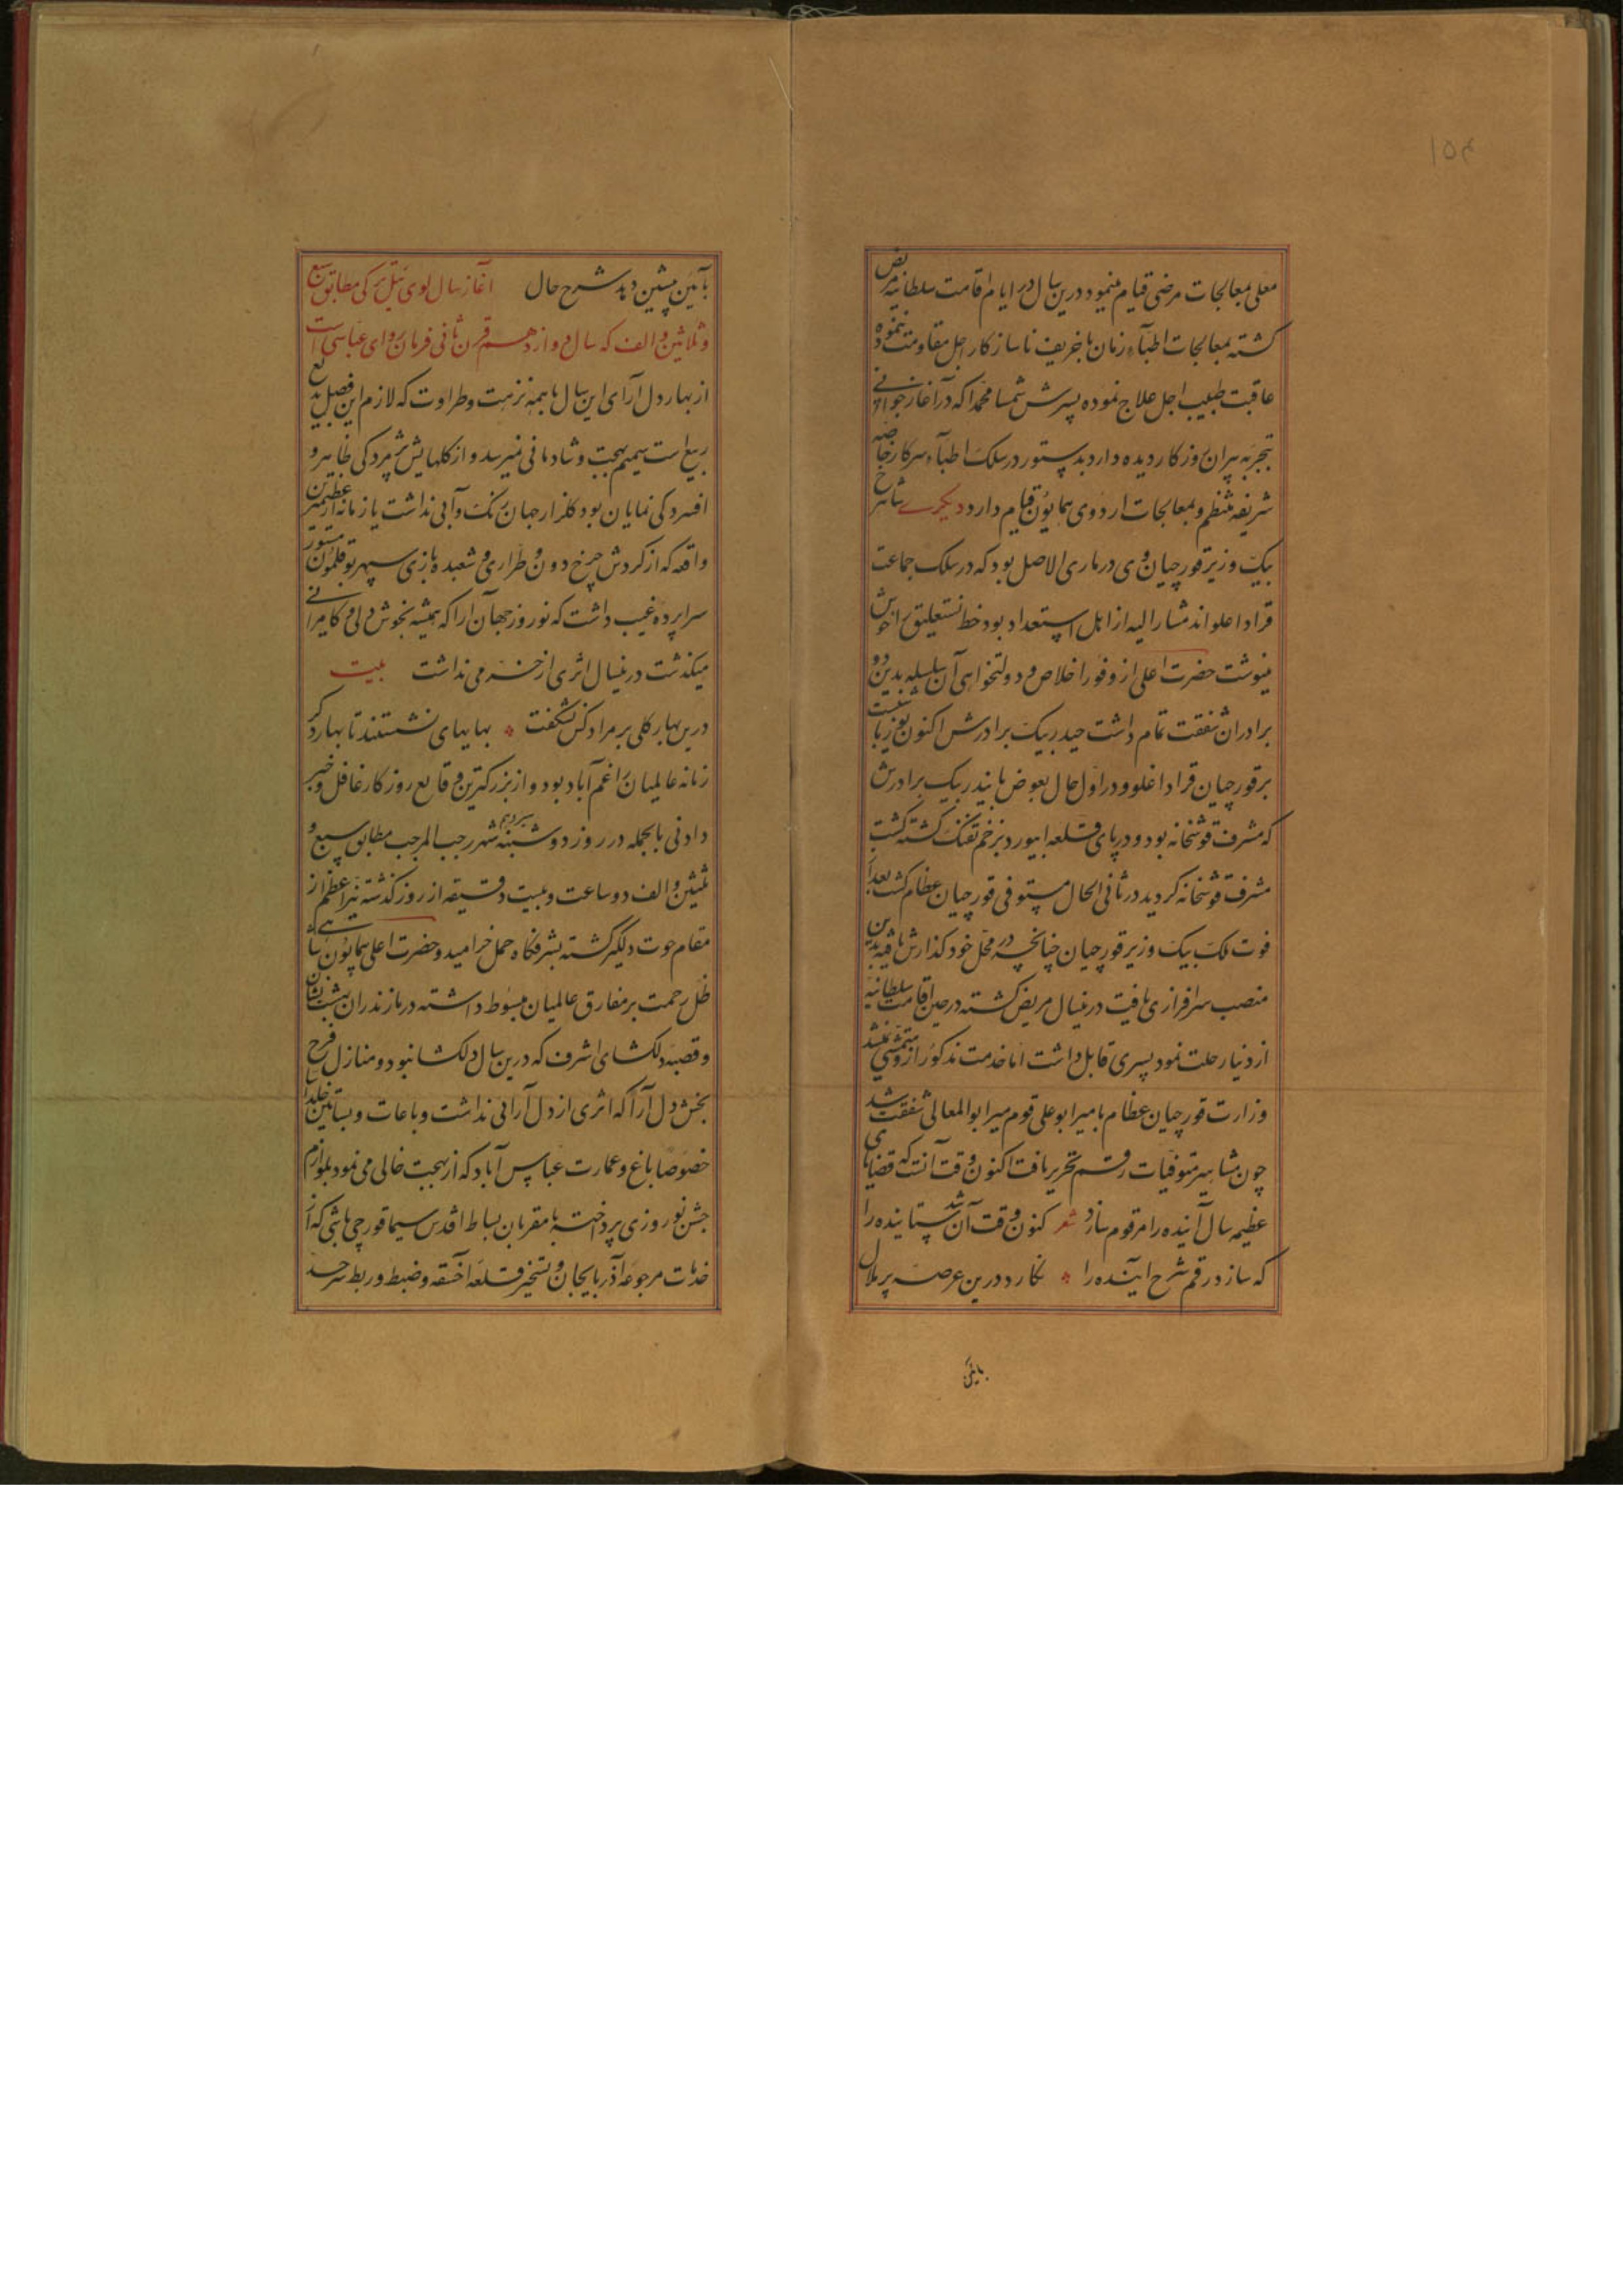 ۱۵۴
معلی بمعالجات مرضی قیام مینمود درین سال در ایام اقامت سلطانیه مریض
کشته بمعالجات اطبآء زمان با حریف ناسازکار اجل مقاومت ننموده
عاقبت طبیب اجل علاج نموده پسرش شمسا محمدا که در آغاز جوانی
تجربه پیران روزکار دیده دارد بدستور در سلک اطبآء سرکار خاصه
شریفه منتظم و بمعالجات اردوی همایون قیام دارد دیکری شاهرخ
بیک وزیر قورچیان وی درماری الاصل بود که در سلک جماعت
قراداغلواند مشارالیه از اهل استعداد بود خط نستعلیق را خوش
مینوشت حضرت اعلی از وفور اخلاص و دولتخواهی آن سلسله بدین دو
برادران شفقت تمام داشت حیدر بیک برادرش اکنون یوزباشیست
بر قورچیان قراداغلو و در اول حال بعوض بایندر بیک برادرش
که مشرف قوشخانه بود و در پای قلعه ابیورد بزخم تفنک کشته کشت
مشرف قوشخانه کردید در ثانی الحال مستوفی قورچیان عظام کشت بعد از
فوت ملک بیک وزیر قورچیان چنانچه در محل خود کذارش یافته بدین
منصب سرافرازی یافت درینسال مریض کشته در حین اقامت سلطانیه
از دنیا رحلت نمود پسری قابل داشت اما خدمت مذکور ازو متمشی نمیشد
وزارت قورچیان عظام بامیر ابوعلی قوم میر ابوالمعالی شفقت شد
چون مشاهیر متوفیات رقم تحریر یافت اکنون وقت آنست که قضایای
عظیمه سال آینده را مرقوم سازد شعر کنون وقت آن شد ستاینده را
که سازد رقم شرح آینده را نکارد درین عرصه پر ملال
بآیین
بآیین پیشین دهد شرح حال آغاز سال لوی ئیل ترکی مطابق سبع
و ثلاثین و الف که سال دوازدهم قرن ثانی فرمان روای عباسی است
از بهار دل آرای این سال با همه نزهت و طراوت که لازم این فصل بدیع
ربیع است شمیم بهجت و شادمانی نمیرسد و از کلهایش پژمردکی ظاهر و
افسردکی نمایان بود کلزار جهان رنک و آبی نداشت یا زمانه از عظیمترین
واقعه که از کردش چرخ دون و طراری و شعبده بازی سپهر بوقلمون مستور
سراپرده غیب داشت که نوروز جهان آرا که همیشه بخوش دلی و کامرانی
میکذشت درینسال اثری از خرمی نداشت بیت
درین بهار کلی بر مراد کس نشکفت بهابهای نشستند تا بهار دکر
زمانه عالمیان را غم آباد بود و از بزرکترین وقایع روزکار غافل و خبر
دادنی بالجمله در روز دوشنبه سیزدهم شهر رجب المرجب مطابق سبع و
ثلثین و الف دو ساعت و بیست دقیقه از روز کذشته نیر اعظم از
مقام حوت دلکیر کشته بشرفکاه حمل خرامید و حضرت اعلی همایون شاهی
ظل رحمت بر مفارق عالمیان مبسوط داشته در مازندران بهشت نشان
و قصبه دلکشای اشرف که درین سال دلکشا نبود و منازل فرح
بخش دل آرا که اثری از دل آرائی نداشت و باغات و بساتین خلدآسا
خصوصا باغ و عمارت عباس آباد که از بهجت خالی می نمود بلوازم
جشن نوروزی پرداخته بامقربان بساط اقدس سیما قورچی باشی که از
خدمات مرجوعه آذربایجان و تسخیر قلعه اخسقه و ضبط و ربط سرحد